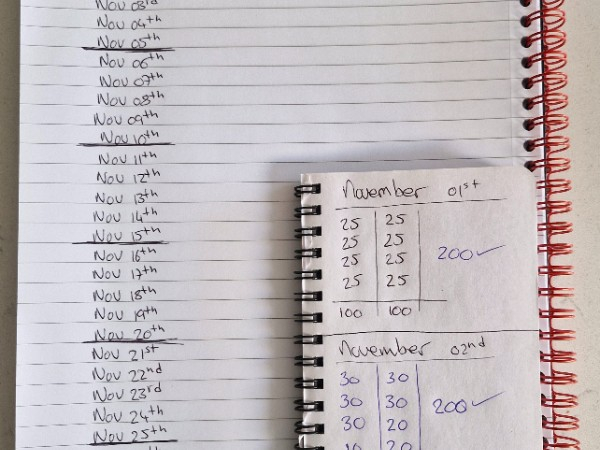 Nov 03rd
Nov 04th
Nov 05th
Nov 06th
Nov 07th
Nov 08th
Nov 09th
Nov 10th
Nov 11th
Nov 12th
Nov 13th
Nov 14th
Nov 15th
Nov 16th
Nov 17th
Nov 18th
Nov 19th
Nov 20th
Nov 21st
Nov 22nd
Nov 23rd
Nov 24th
Nov 25th
November 01st
25 25
25 25
25 25 200✓
25 25
100 100
November 02nd
30 30
30 30 200✓
30 20
10 20